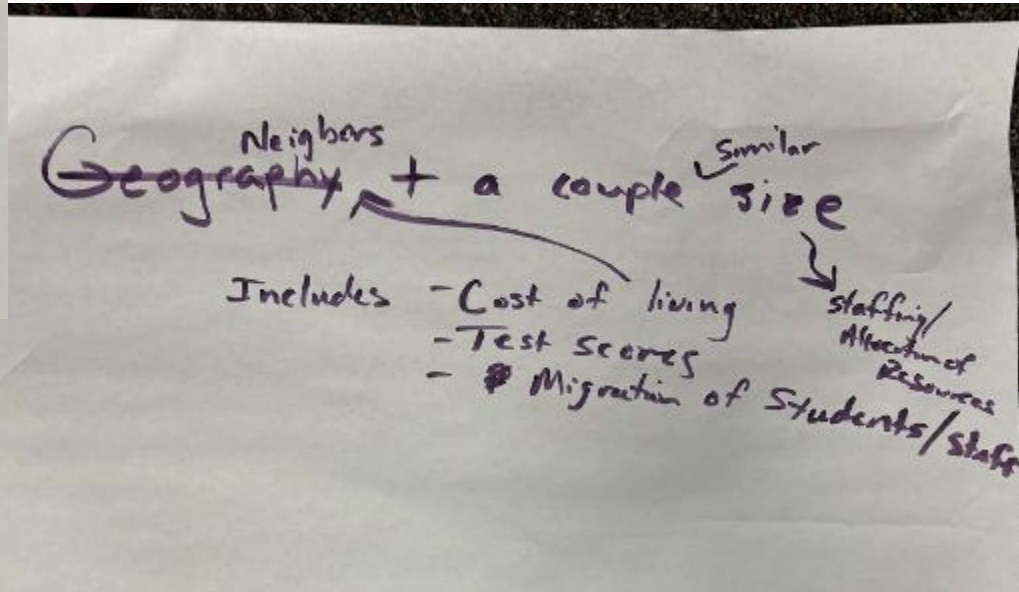 Neigbors
Geography + a couple similar size
Includes - Cost of living
- Test scores
- Migration of Students/Staff
staffing/
Allocation of
Resources